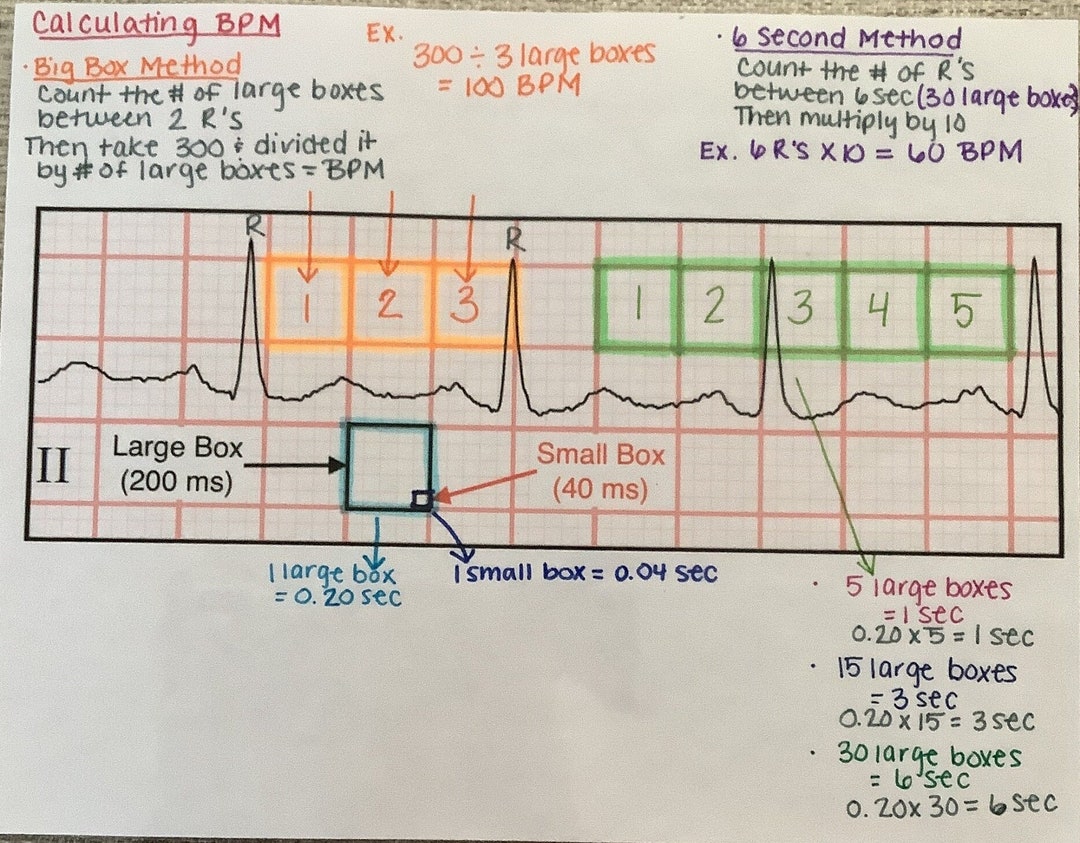 Calculating BPM
· Big Box Method
Count the # of large boxes
between 2 R's
Then take 300 & divided it
by # of large boxes = BPM
Ex.
300 ÷ 3 large boxes
= 100 BPM
· 6 Second Method
Count the # of R's
between 6 sec (30 large boxes)
Then multiply by 10
Ex. 6 R's x 10 = 60 BPM
R
R
1 2 3
1 2 3 4 5
II
Large Box
(200 ms)
Small Box
(40 ms)
1 large box
= 0.20 sec
1 small box = 0.04 sec
· 5 large boxes
= 1 sec
0.20 x 5 = 1 sec
· 15 large boxes
= 3 sec
0.20 x 15 = 3 sec
· 30 large boxes
= 6 sec
0.20 x 30 = 6 sec